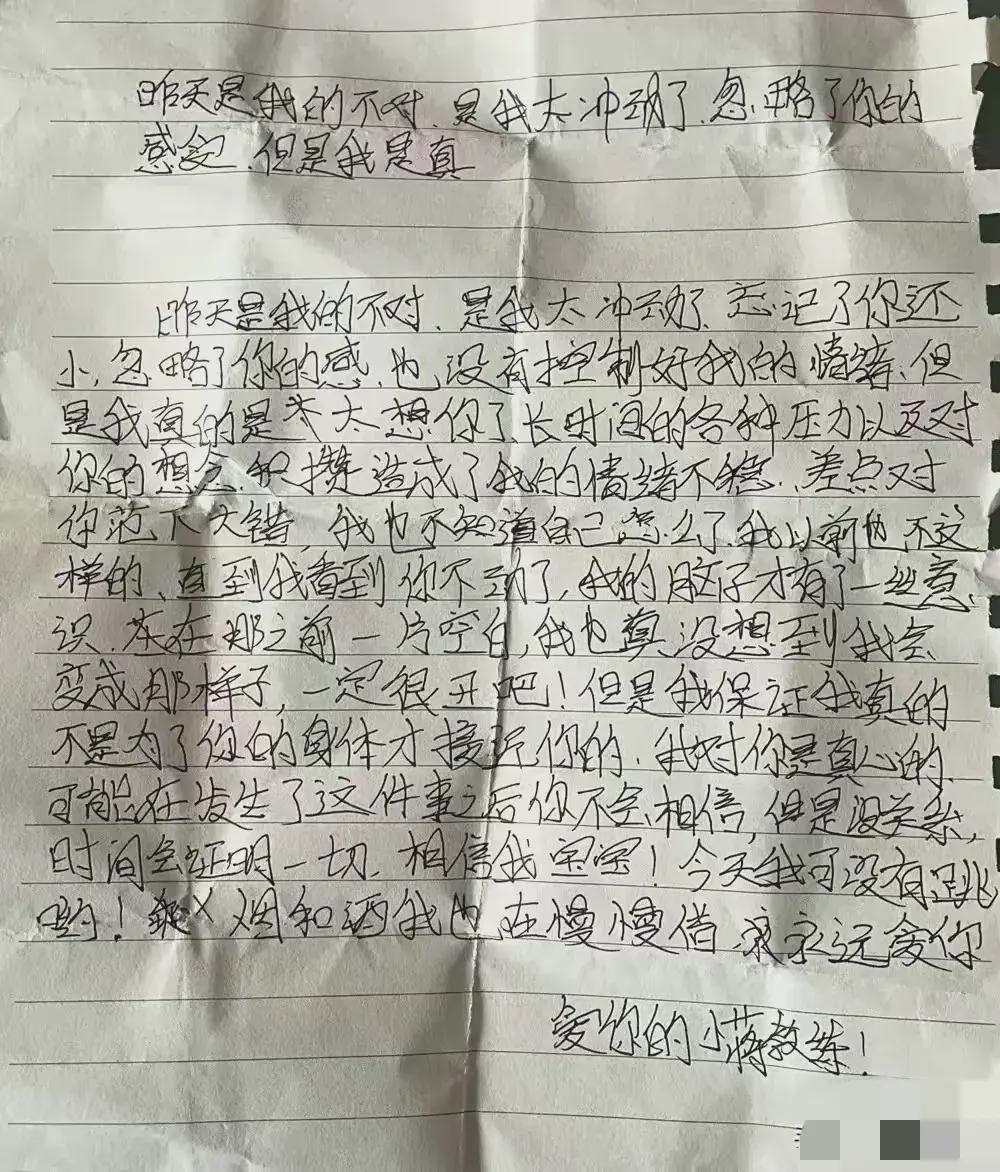 昨天是我的不对、是我太冲动了、忽略了你的
感受、但是我是真
昨天是我的不对、是我太冲动、忘记了你还
小、忽略了你的感、也没有控制好我的情绪、但
是我真的是太想你了、长时间的各种压力以及对
你的想念积攒造成了我的情绪不稳、差点对
你范下大错、我也不知道自己怎么了、我以前也不这
样的、直到我看到你不动了、我的脑子才有了一丝意
识、在那之前一片空白,我也真没想到我会
变成那样子,一定很丑吧!但是我保证我真的
不是为了你的身体才接近你的、我对你是真心的、
可能在发生了这件事之后你不会相信,但是没关系,
时间会证明一切、相信我宝宝!今天我可没有跳
哟!烟和酒我也在慢慢借、我永远爱你
爱你的小蒋教练!